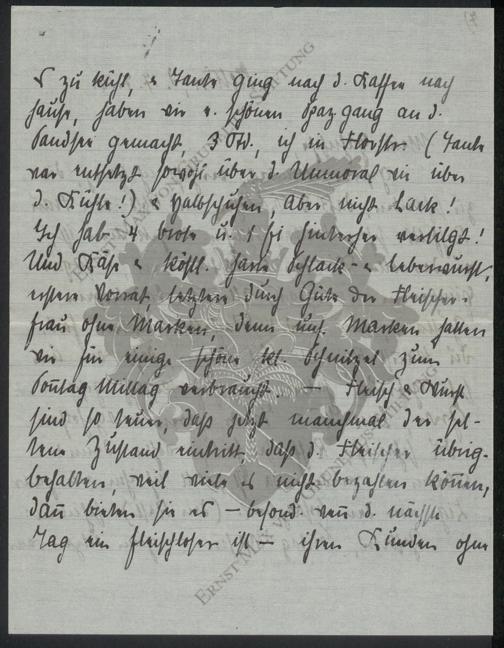 es zu kühl, u. Tante ging nach d. Kaffee nach
Hause, haben wir e. schönen Spaziergang an d.
Sandsee gemacht, 3 Std., ich in Florstr. (Tante
war entsetzt sowohl über d. Unmoral wie über
d. Kühle!) u. Halbschuhen, aber nicht Lack!
Ich hab 4 Brote u. 1 Ei hinterher vertilgt!
Und Käse u. köstl. harte Schlack- u. Leberwurst,
erstere Vorrat, letztere durch Güte der Fleischers-
frau ohne Marken, denn uns. Marken hatten
wir für einige schöne kl. Schnitzel zum
Sonntag Mittag verbraucht. — Fleisch u. Wurst
sind so teuer, daß jetzt manchmal der sel-
tene Zustand eintritt, daß d. Fleischer übrig-
behalten, weil viele es nicht bezahlen können,
dann bieten sie es – besond. wenn d. nächste
Tag ein fleischloser ist – ihren Kunden ohne
ERNST MAY VON GRUENHAUS STIFTUNG